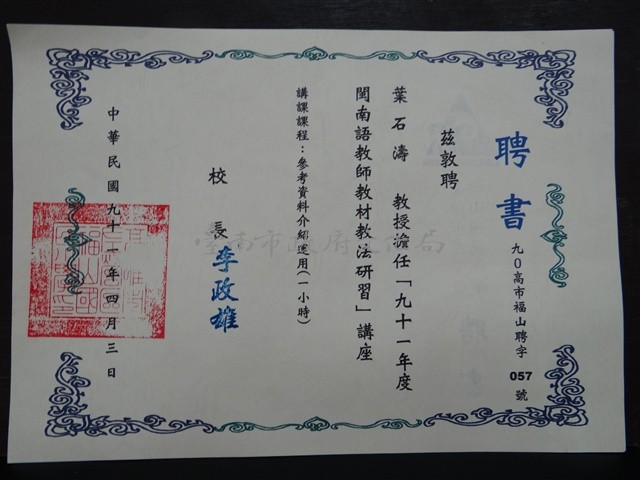 聘書
九0高市福山聘字057號
茲敦聘
葉石濤 教授擔任「九十一年度
閩南語教師教材教法研習」講座
講課課程：參考資料介紹運用(一小時)
校長 李政雄
中華民國九十一年四月三日